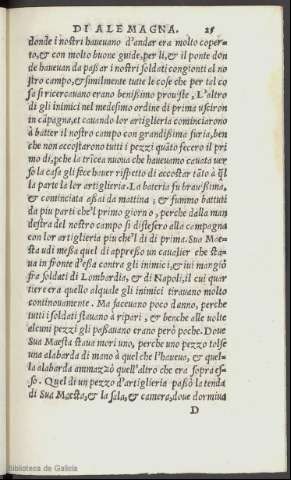 DI ALEMAGNA. 25
donde i nostri haueuano d'andar era molto coper-
to,& con molto buone guide, per li,& il ponte don
de haueuan da paßar i nostri soldati congionti al no
stro campo,& similmente tute le cose che per tal co
sa si ricercauano erano benißimo prouiste. L'altro
di gli inimici nel medesimo ordine di prima usciron
in cãpagna,et cauando lor artiglieria cominciarono
à batter il nostro campo con grandißima furia, ben
che non accostarono tutti i pezzi quãto fecero il pri
mo di,pche la trĩcea nuoua che haueuamo cauata uer
so la casa gli fece hauer rispetto di accostar tãto à q̃l
la parte la lor artiglieria. La bateria fu brauißima,
& cominciata aßai da mattina; & fummo battuti
da piu parti che'l primo giorno, perche dalla man
destra del nostro campo si distesero alla campagna
con lor artiglieria piu che'l di di prima. Sua Mae-
sta udi meßa quel di appreßo un caualier che sta-
ua in fronte d'essa contra gli inimici,& iui mangiò
fra soldati di Lombardia, & di Napoli,il cui quar
tiere era quello alquale gli inimici tirauano molto
continouamente. Ma faceuano poco danno, perche
tutti i soldati stauano à ripari, & benche alle uolte
alcuni pezzi gli paßauano erano però poche. Doue
Sua Maestà staua mori uno, perche uno pezzo tolse
una alabarda di mano à quel che l'haueua, & quel-
la alabarda ammazzò quell'altro che era sopra es-
so. Quel di un pezzo d'artiglieria paßò la tenda
di Sua Maestà,& la sala,& camera,doue dormiua
D
Biblioteca de Galicia